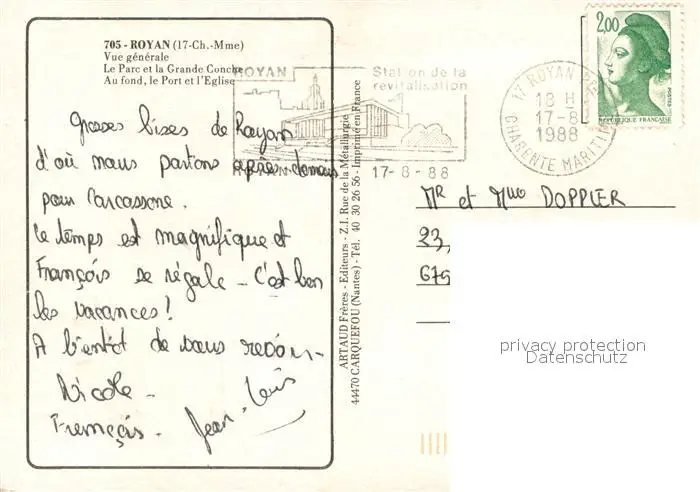 705 - ROYAN (17-Ch.-Mme)
Vue générale
Le Parc et la Grande Conche
Au fond, le Port et l'Eglise
Grosses bises de Royan
d'où nous partons après-demain
pour Carcassonne.
Le temps est magnifique et
François se régale - C'est bon
les vacances !
A bientôt de vous revoir -
Nicole -
François - Jean-Louis
ARTAUD Frères - Editeurs - Z.I. Rue de la Métallurgie
44470 CARQUEFOU (Nantes) - Tél. 40 30 26 56 - Imprimé en France
ROYAN
Station de la
revitalisation
17-8-88
17 ROYAN
18 H
17-8
1988
CHARENTE MARITI
2,00
POSTES
REPUBLIQUE FRANÇAISE
Mr et Mme DOPPLER
23,
679
privacy protection
Datenschutz